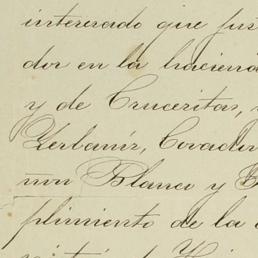 interesado que jus
dor en la haciend
y de Cruceritas,
Zerbaníz, Covador
mon Blanco y
plimiento de la